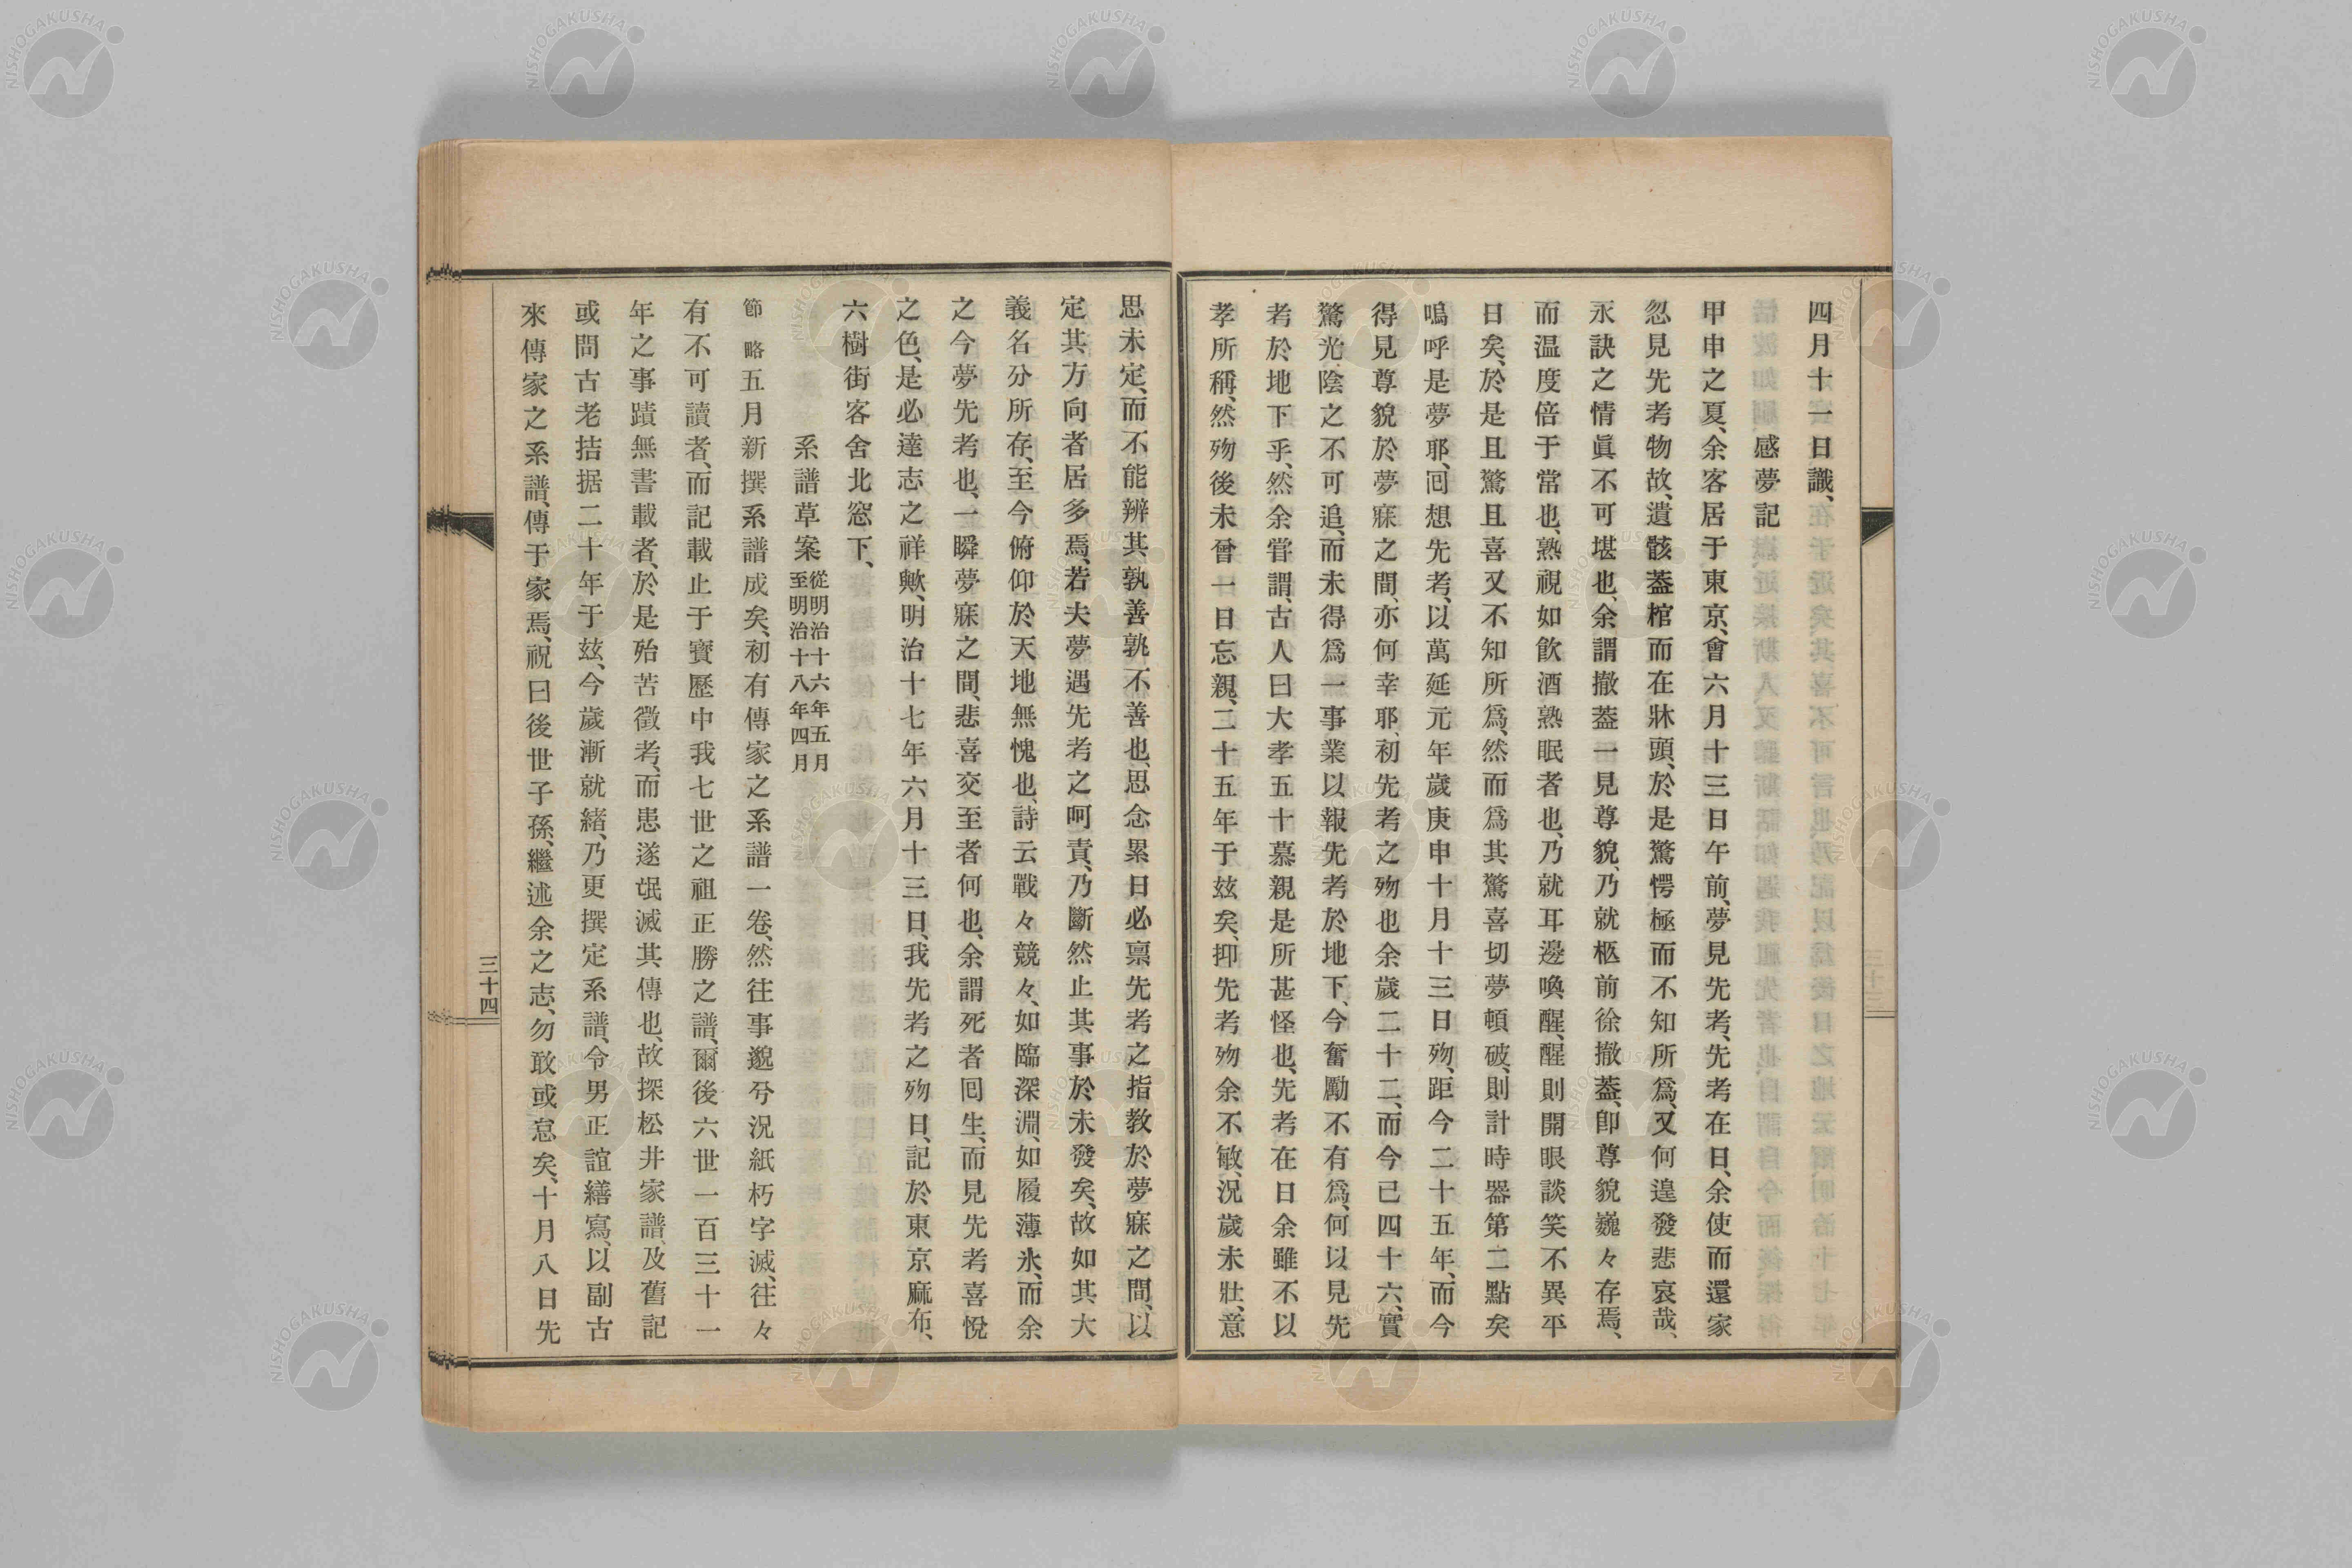 四月十一日識、
感夢記
甲申之夏、余客居于東京、會六月十三日午前、夢見先考、先考在日、余使而還家
忽見先考物故、遺骸葢棺而在牀頭、於是驚愕極而不知所爲、又何遑發悲哀哉、
永訣之情眞不可堪也、余謂撤葢一見尊貌、乃就柩前徐撤葢、卽尊貌巍々存焉、
而温度倍于當也、熟視如飮酒熟眠者也、乃就耳邊喚醒、醒則開眼談笑不異平
日矣、於是且驚且喜又不知所爲、然而爲其驚喜切夢頓破、則計時器第二點矣
嗚呼是夢耶、囘想先考、以萬延元年歲庚申十月十三日歿、距今二十五年、而今
得見尊貌於夢寐之間、亦何幸耶、初先考之歿也余歲二十二、而今己四十六、實
驚光陰之不可追、而未得爲一事業以報先考於地下、今奮勵不有爲、何以見先
考於地下乎、然余甞謂、古人曰大孝五十慕親是所甚怪也、先考在日余雖不以
孝所稱、然歿後未曾一日忘親、二十五年于玆矣、抑先考歿余不敏、況歲未壯、意
思未定、而不能辨其孰善孰不善也、思念累日必禀先考之指教於夢寐之間、以
定其方向者居多焉、若夫夢遇先考之呵責、乃斷然止其事於未發矣、故如其大
義名分所存、至今俯仰於天地無愧也、詩云戰々競々、如臨深淵、如履薄氷、而余
之今夢先考也、一瞬夢寐之間、悲喜交至者何也、余謂死者囘生、而見先考喜悅
之色、是必達志之祥歟、明治十七年六月十三日、我先考之歿日、記於東京麻布、
六樹街客舍北窓下、
系譜草案 從明治十六年五月
至明治十八年四月
節略五月新撰系譜成矣、初有傳家之系譜一卷、然往事邈兮況紙朽字滅、往々
有不可讀者、而記載止于寶歷中我七世之祖正勝之譜、爾後六世一百三十一
年之事蹟無書載者、於是殆苦徵考、而患遂氓滅其傳也、故探松井家譜、及舊記
或問古老拮据二十年于玆、今歲漸就緒、乃更撰定系譜、令男正誼繕寫、以副古
來傳家之系譜、傳于家焉、祝曰後世子孫、繼述余之志、勿敢或怠矣、十月八日先
三十四
NISHOGAKUSHA